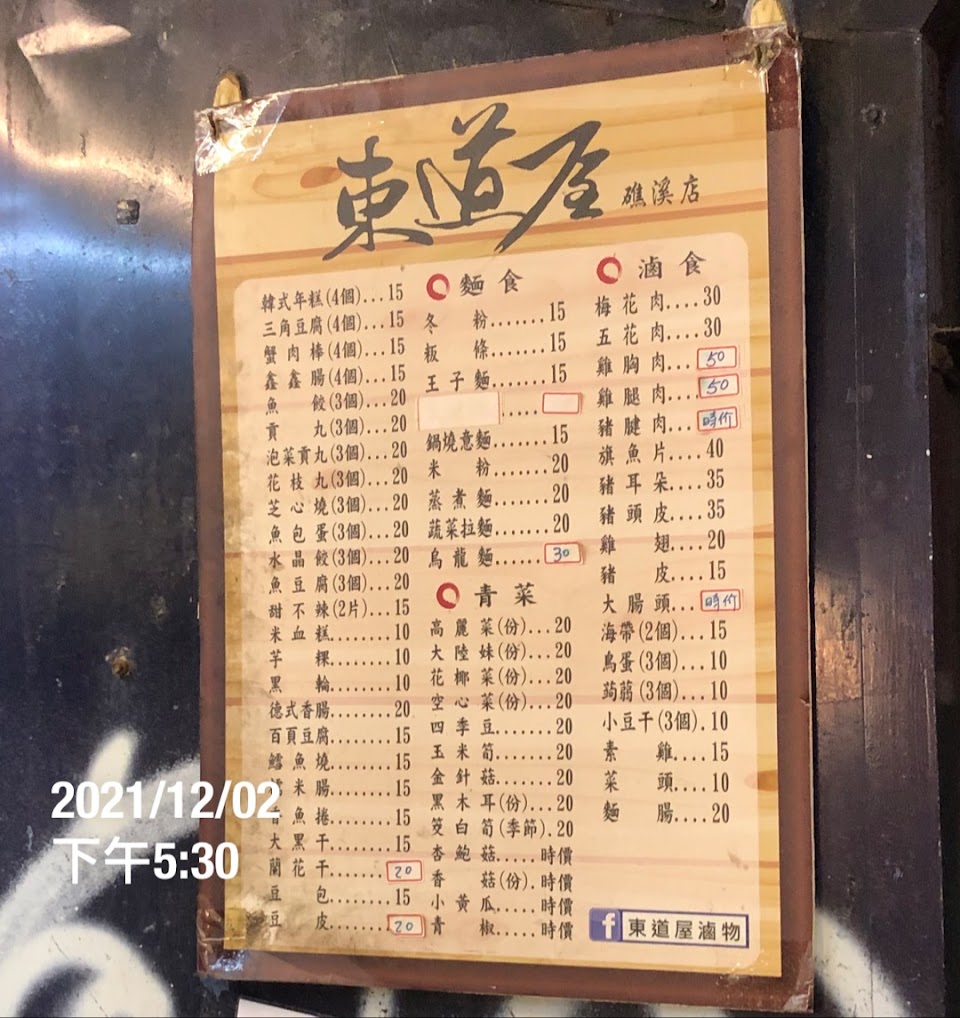 東道屋 礁溪店
韓式年糕(4個)...15
三角豆腐(4個)...15
蟹肉棒(4個)...15
鑫鑫腸(4個)...15
魚餃(3個)...20
貢丸(3個)...20
泡菜貢丸(3個)...20
花枝丸(3個)...20
芝心燒(3個)...20
魚包蛋(3個)...20
水晶餃(3個)...20
魚豆腐(3個)...20
甜不辣(2片)...15
米血糕.........10
芋粿.........10
黑輪.........10
德式香腸........20
百頁豆腐........15
鱈魚燒.........15
米腸.........15
魚捲.........15
大黑干.........15
蘭花干........20
豆包.........15
豆皮........20
麵食
冬粉.......15
粄條.......15
王子麵.......15
鍋燒意麵.......15
米粉.......20
蒸煮麵.......20
蔬菜拉麵.......20
烏龍麵......30
青菜
高麗菜(份)...20
大陸妹(份)...20
花椰菜(份)...20
空心菜(份)...20
四季豆.......20
玉米筍.......20
金針菇.......20
黑木耳(份)..20
筊白筍(季節).20
杏鮑菇.....時價
香菇(份).時價
小黃瓜.....時價
青椒.....時價
滷食
梅花肉....30
五花肉....30
雞胸肉....50
雞腿肉....50
豬腱肉....時价
旗魚片....40
豬耳朵....35
豬頭皮....35
雞翅....20
豬皮....15
大腸頭...時价
海帶(2個)...15
鳥蛋(3個)...10
蒟蒻(3個)...10
小豆干(3個).10
素雞....15
菜頭....10
麵腸....20
f 東道屋滷物
2021/12/02
下午5:30